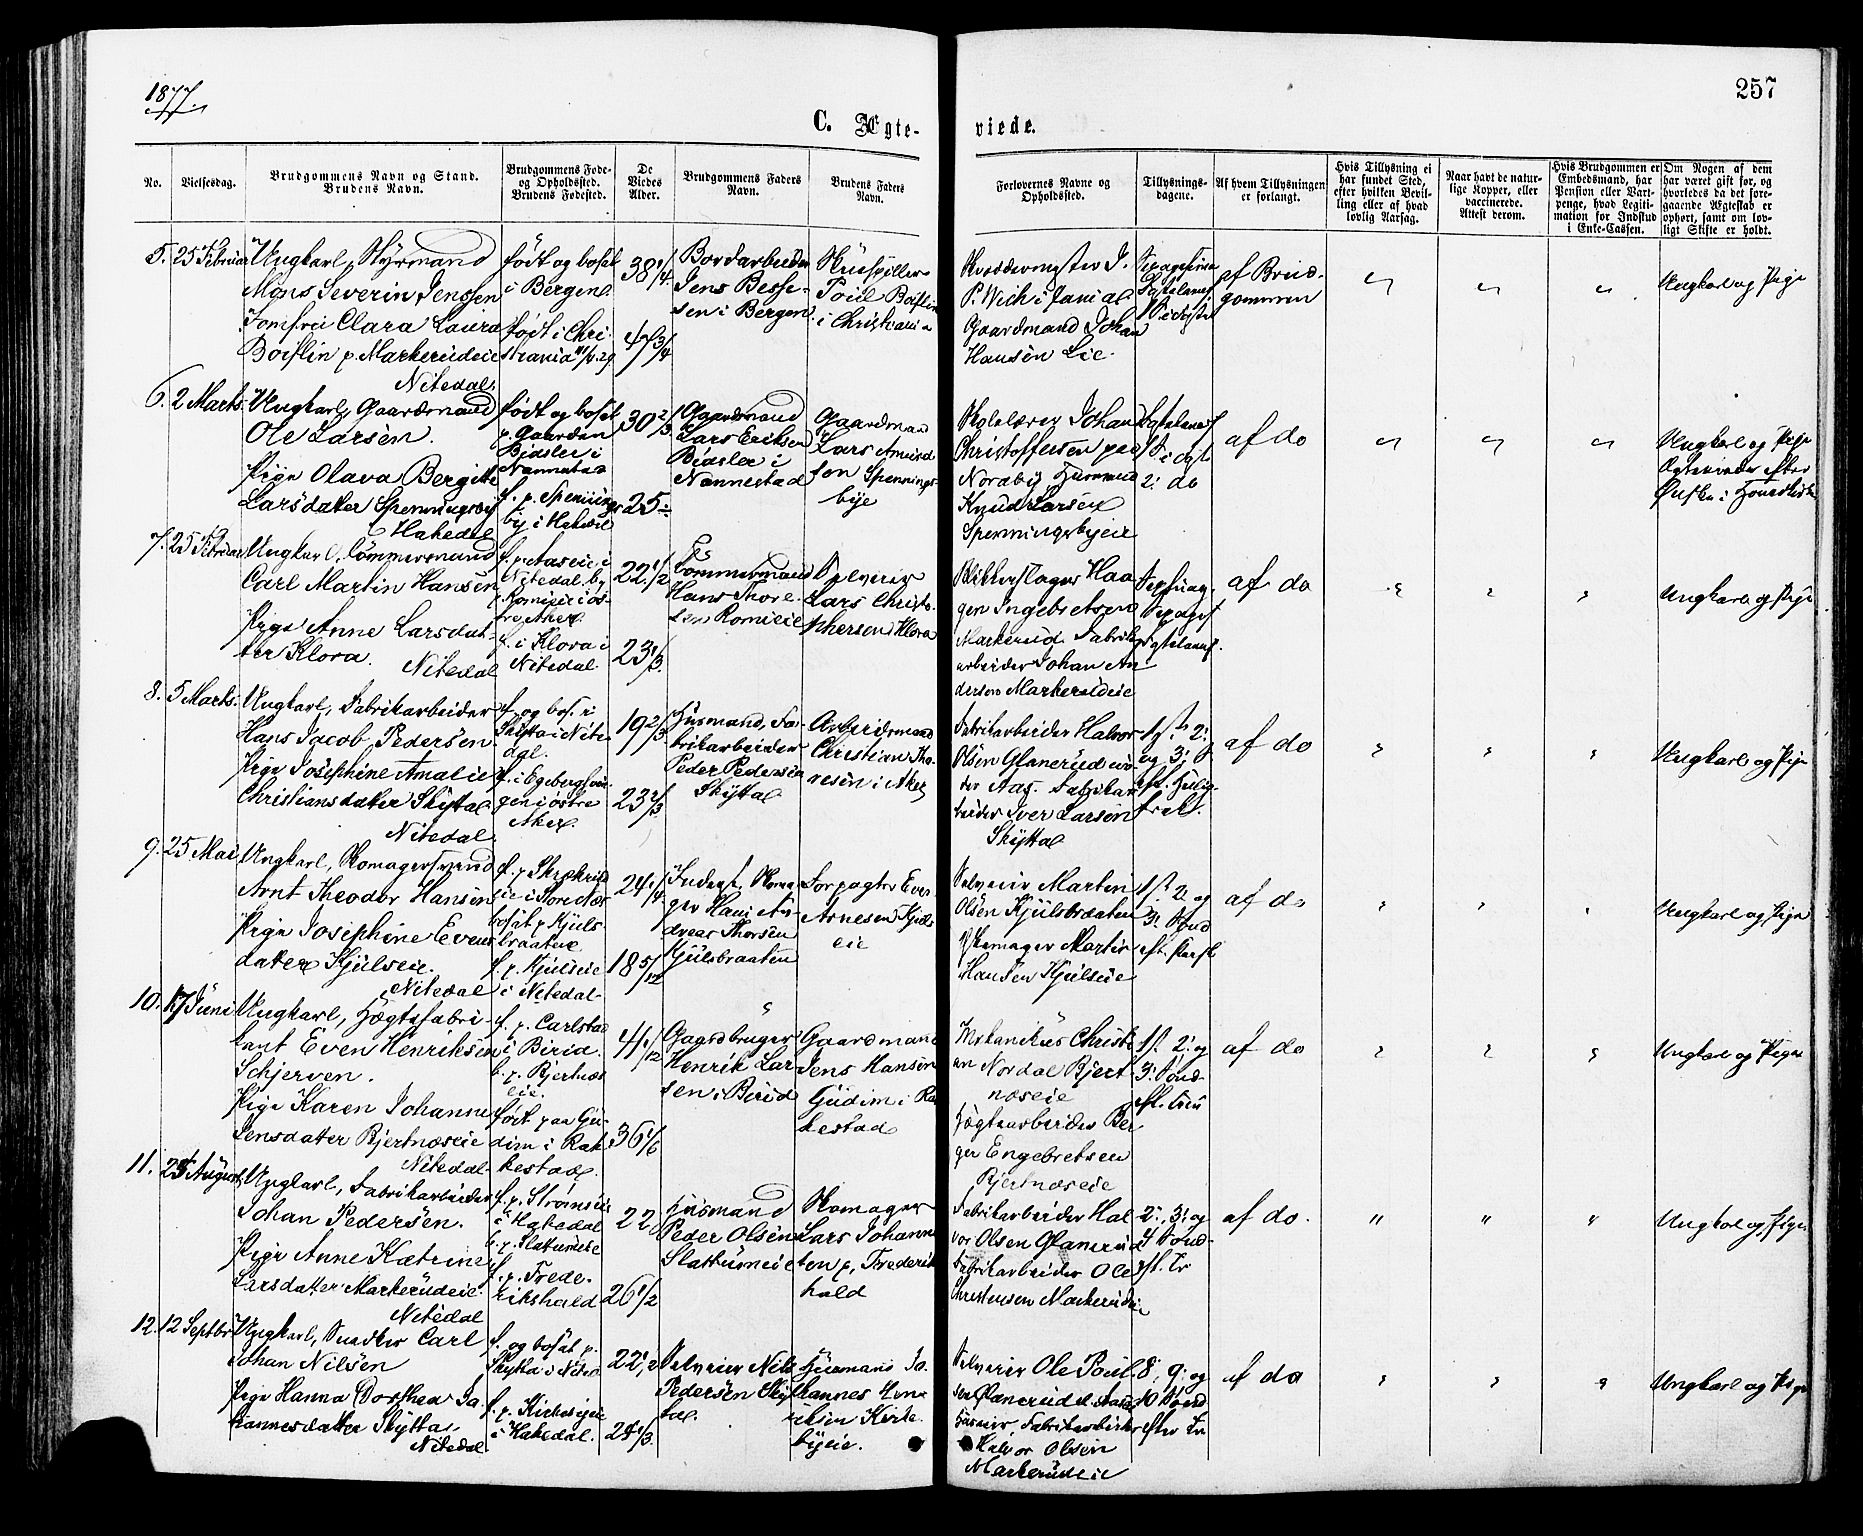 1877.
257
C. Ægte-
viede.
No.
Vielsesdag.
Brudgommens Navn og Stand.
Brudens Navn.
Brudgommens Føde-
og Opholdssted.
Brudens Fødested.
De
Viedes
Alder.
Brudgommens Faders
Navn.
Brudens Faders
Navn.
Forlovernes Navne og
Opholdssted.
Tillysnings-
dagene.
Af hvem Tillysningen
er forlangt.
Hvis Tillysning ei
har fundet Sted,
efter hvilken Bevil-
ling eller af hvad
lovlig Aarsag.
Naar havt de natur-
lige Kopper, eller
vaccinerede.
Attest derom.
Hvis Brudgommen er
Embedsmand, har
Pension eller Vart-
penge, hvad Legiti-
mation for Indskud
i Enke-Cassen.
Om Nogen af dem
har været gift før, og
hvorledes da det fore-
gaaende Ægteskab er
ophørt, samt om lov-
ligt Skifte er holdt.
5. 25 Februar
Ungkarl, Styrmand
Mons Severin Jenssen
Jomfru Clara Laura
Boiflin p. Markerudeie
Nitedal.
født og bosat
i Bergen
født i Chri-
stiania 11/4.29
38 1/4
47 3/4
Bordarbeider
Jens Besse-
sen i Bergen
Skuespiller
Poul Boiflin
i Christiania
P. Wich i
Gaardmand Johan
Hansen Lie.
af Brud-
gommen
Ungkarl og Pige
6. 2 Marts.
Ungkarl, Gaardmand
Ole Larsen.
Pige Olava Bergitte
Larsdater Spenningsby
Hakedal
født og bosat
p. Gaarden
Bidsler i
Nannestad
f. p. Spennings
by i Hakedal
30 2/3
25
Gaardmand
Lars Eriksen
Bidsler i
Nannestad
Gaardmand
Lars Amund
sen Spennings-
bye
Skolelærer Johan
Christoffersen paa
Nordby Husmand
Knud Larsen
Spenningsbyeie
2: do
af do
Ungkarl og Pige
7. 25 Februar
Ungkarl, Tømmermand
Carl Martin Hansen
Pige Anne Larsdat-
ter Klova.
Nitedal
f. p. Aaseie i
Nitedal. b.
p. Romieie i øs-
tre Aker
f. i Klova i
Nitedal
22 1/2
23 1/3.
Tømmermand
Hans Thore-
sen Romieie
Selveier
Lars Christo-
phersen Klova
Blikkenslager Haa
gen Ingebretsen
Markerud Fabrik
arbeider Johan An
dersen Markerudeie
af do
Ungkarl og Pige
8. 5 Marts.
Ungkarl, Fabrikarbeider
Hans Jacob Pedersen.
Pige Josephine Amalie
Christiansdater Skyttal
Nitedal
f. og bos. i
Skytta i Nite-
dal.
f. i Egeberg
gen i østre
Aker.
19 2/3
23 2/3
Husmand, Fa-
brikarbeider
Peder Pedersen
Skyttal
Arbeidsmand
Christian Tho
resen i Aker
Fabrikarbeider Halvor
Olsen Glanerud
Aas. Fabrikar
beider Iver Larsen
Skyttal
1st. 2:
og 3: S.
eft. Hellig-
trek.
af do
Ungkarl og Pige
9. 25 Mai
Ungkarl, Skomagersvend
Arnt Theodor Hansen
Pige Josephine Evens
dater Kjulseie.
Nitedal
bosat p. Kjuls-
braaten.
f. p. Kjulseie
i Nitedal.
24 1/4
18 5/12
Hans An-
dreas Thorsen
Kjulsbraaten
Forpagter Even
Arnesen Kjuls
eie
Selveier Martin
Olsen Kjulsbraaten
Skomager Martin
Hansen Kjulseie
1st. 2: og
3: Sønd
eft. Paask
af do
Ungkarl og Pige
10. 17 Juni
Ungkarl, Hægtefabri-
kant Even Henriksen
Schjerven.
Pige Karen Johanne
Jensdater Bjertnæseie
Nitedal
f. p. Carlstad
i Birid.
b. p. Bjertnæs
eie.
født paa Gu-
dim i Rak-
kestad.
41 1/12
36 1/6
Gaardbruger
Henrik Lar
sen i Birid
Gaardmand
Jens Hansen
Gudim i Ra
kestad
Mekanikus Christi
an Nordal Bjert
næseie
Hægtearbeider Bir
ger Engebretsen
Bjertnæseie
1st. 2: og
3: Sønd-
eft. Tri
af do
Ungkarl og Pige
11. August
Ungkarl, Fabrikarbeider
Johan Pedersen.
Pige Anne Katrine
Larsdater Markerudeie.
Nitedal
f. p. Strømseie
i Hakedal
b. p. Slattumeie
f. p. Frede-
rikshald
22
26 1/2
Husmand
Peder Olsen
Slattumeie
Skomager
Lars Johanne
sen p. Frederik
hald
Fabrikarbeider Hal
vor Olsen Glanerud
Fabrikarbeider Ole
Christensen Markerudeie
2:, 3: og
4 Sønd-
eft. Tr
af do.
Ungkarl og Pige
12. 12 Septbr
Ungkarl, Snedker Carl
Johan Nilsen
Pige Hanna Dorthea Jo
hannesdatter Skytta
Nitedal
f. og bosat p.
Skytta i Nitedal
f. p. Kirkebyeie
i Hakedal.
22 1/2
24 1/3.
Selveier Nils
Pedersen Skyt
tal.
Husmand Jo-
hannes Hen
riksen Kirke
byeie.
Selveier Ole Poul
sen Glanerud
Fabrikarbeider
Halvor Olsen
Markerudeie
8:, 9: og
10 Sønd
efter Tr
af do
Ungkarl og Pige